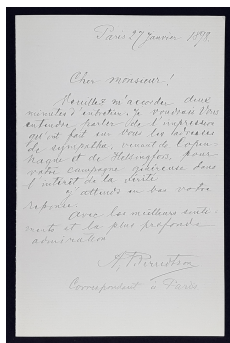 Paris 27 janvier 1898.
Cher monsieur!
Veuillez m'accorder deux
minutes d'entretien. Je voudrais vous
entendre parler de l'impression
qu'ont fait sur vous les adresses
de sympathie, venant de Copen-
hague et de Helsingfors, pour
votre campagne généreuse dans
l'intérêt de la vérité.
J'attends en bas votre
réponse.
Avec les meilleurs senti-
ments et la plus profonde
admiration
A.
Correspondent à Paris